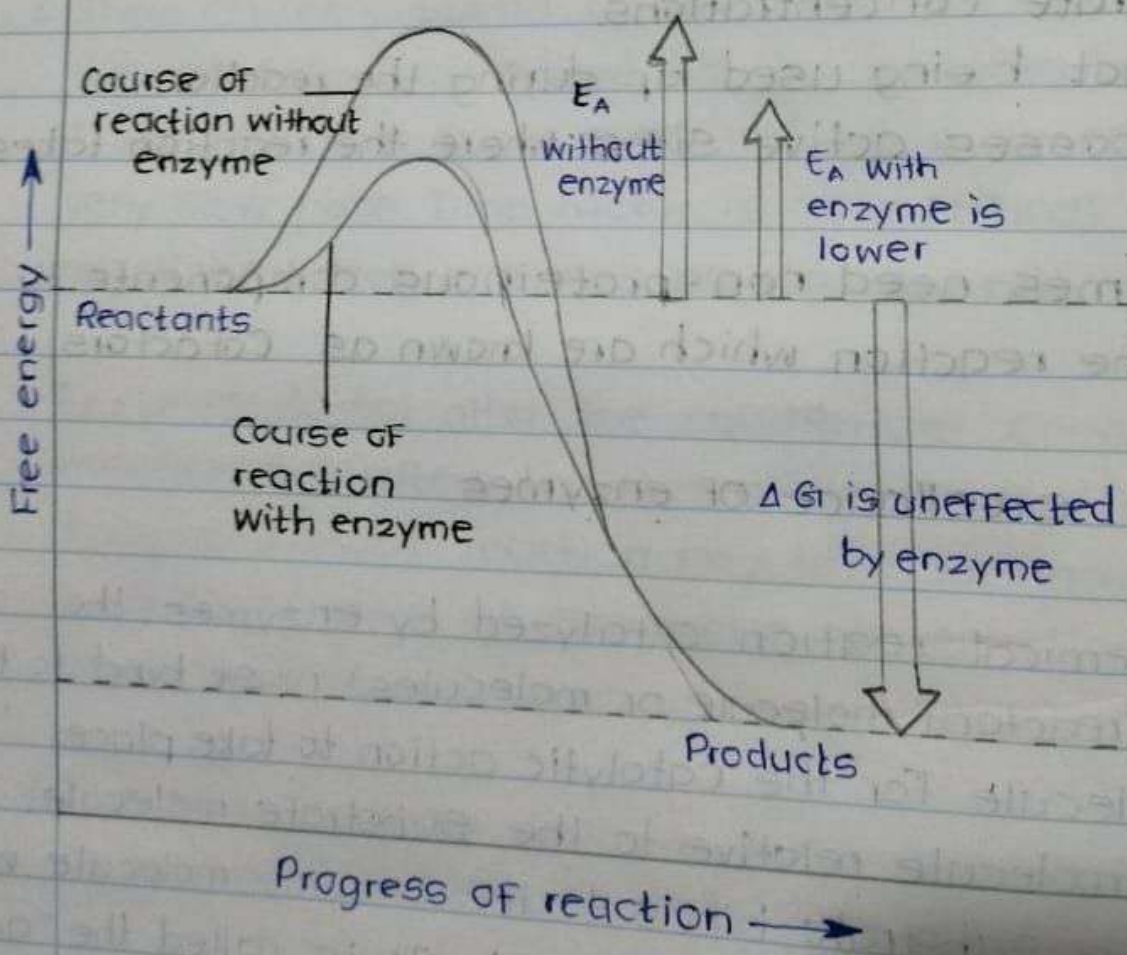 Course of
reaction without
enzyme
EA
without
enzyme
EA with
enzyme is
lower
Free energy
Reactants
Course of
reaction
with enzyme
Δ G is uneffected
by enzyme
Products
Progress of reaction